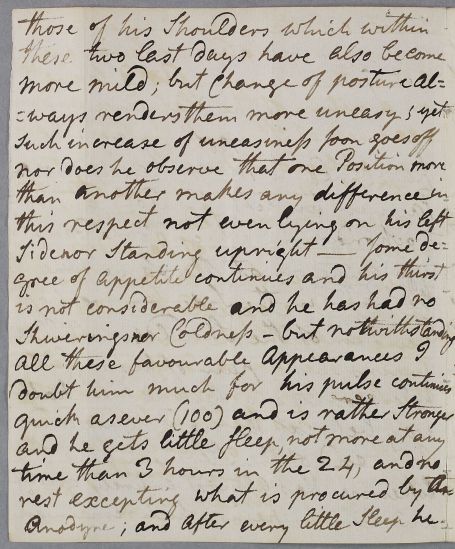 those of his Shoulders which within
these two last Days have also become
more mild; but Change of posture al=
=ways renders them more uneasy; yet
Such increase of uneasiness soon goes off
nor does he observe that one Position more
than another makes any difference in
this respect not even lying on his left
Side nor Standing upright — Some de=
gree of appetite continues and his thirst
is not considerable and he has had no
Shiverings nor Coldness – but notwithstanding
all these favourable Appearances I
doubt him much for his pulse continues
quick as ever (100) and is rather Stronger
and he gets little Sleep not more at any
time than 3 hours in the 24, and no
rest excepting what is procured by An
Anodyne; and After every little Sleep he-